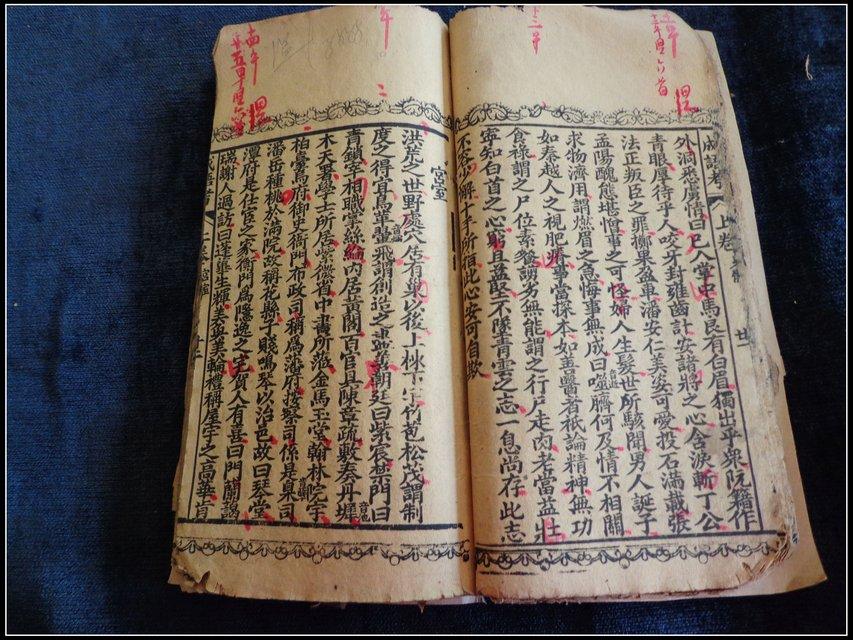 成語考 上卷 廿
外洞悉虜情曰已入掌中馬良有白眉獨出乎衆阮籍作
青眼厚待乎人咬牙封雍齒計安諸將之心含淚斬丁公
法正叛臣之罪擲果盈車潘安仁美姿可愛投石滿載張
孟陽醜態堪憎事之可怪婦人生髮世所駭聞男人誕子
求物濟用謂燃眉之急悔事無成曰噬臍何及情不相關
如秦越人之視肥瘠事當探本如善醫者祗論精神無功
食祿謂之尸位素餐謭劣無能謂之行尸走肉老當益壯
寧知白首之心窮且益堅不墜青雲之志一息尚存此志
不容少懈十手所指此心安可自欺
宮室
洪荒之世野處穴居有巢以後上棟下宇竹苞松茂謂制
度之得宜鳥革翬飛謂創造之盡善朝廷曰紫宸禁門曰
青鎖宰相職掌絲綸內居黃閣百官具陳章疏敷奏丹墀
木天署學士所居紫微省中書所蒞金馬玉堂翰林院宇
柏臺烏府御史衙門布政司稱爲藩府按察司係是臬司
潘岳種桃於滿院故稱花縣子賤鳴琴以治邑故曰琴堂
潭府是仕宦之家衡門爲隱逸之宅賀人有喜曰門闌藹
瑞謝人過訪曰蓬蓽生輝美奐美輪禮稱屋宇之高華肯